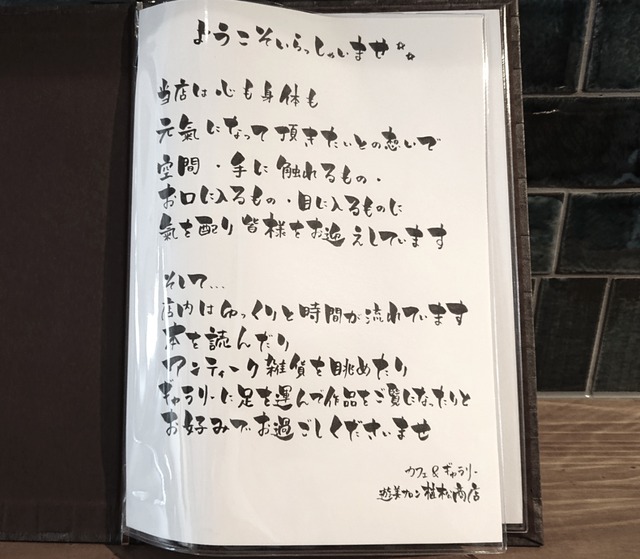 ようこそいらっしゃいませ
当店は心も身体も
元氣になって頂きたいとの想いで
空間・手に触れるもの・
お口に入るもの・目に入るものに
氣を配り皆様をお迎えしています
そして…
店内はゆっくりと時間が流れています
本を読んだり
アンティーク雑貨を眺めたり
ギャラリーに足を運んで作品をご覧になったりと
お好みでお過ごしくださいませ
カフェ&ギャラリー
遊美サロン植松商店